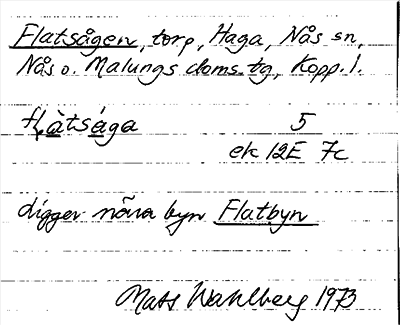 Flatsågen, torp, Haga, Nås sn,
Nås o. Malungs doms.tg, Kopp. l.
flàtsága 5
ek 12E 7c
ligger nära byn Flatbyn
Mats Wahlberg 1973